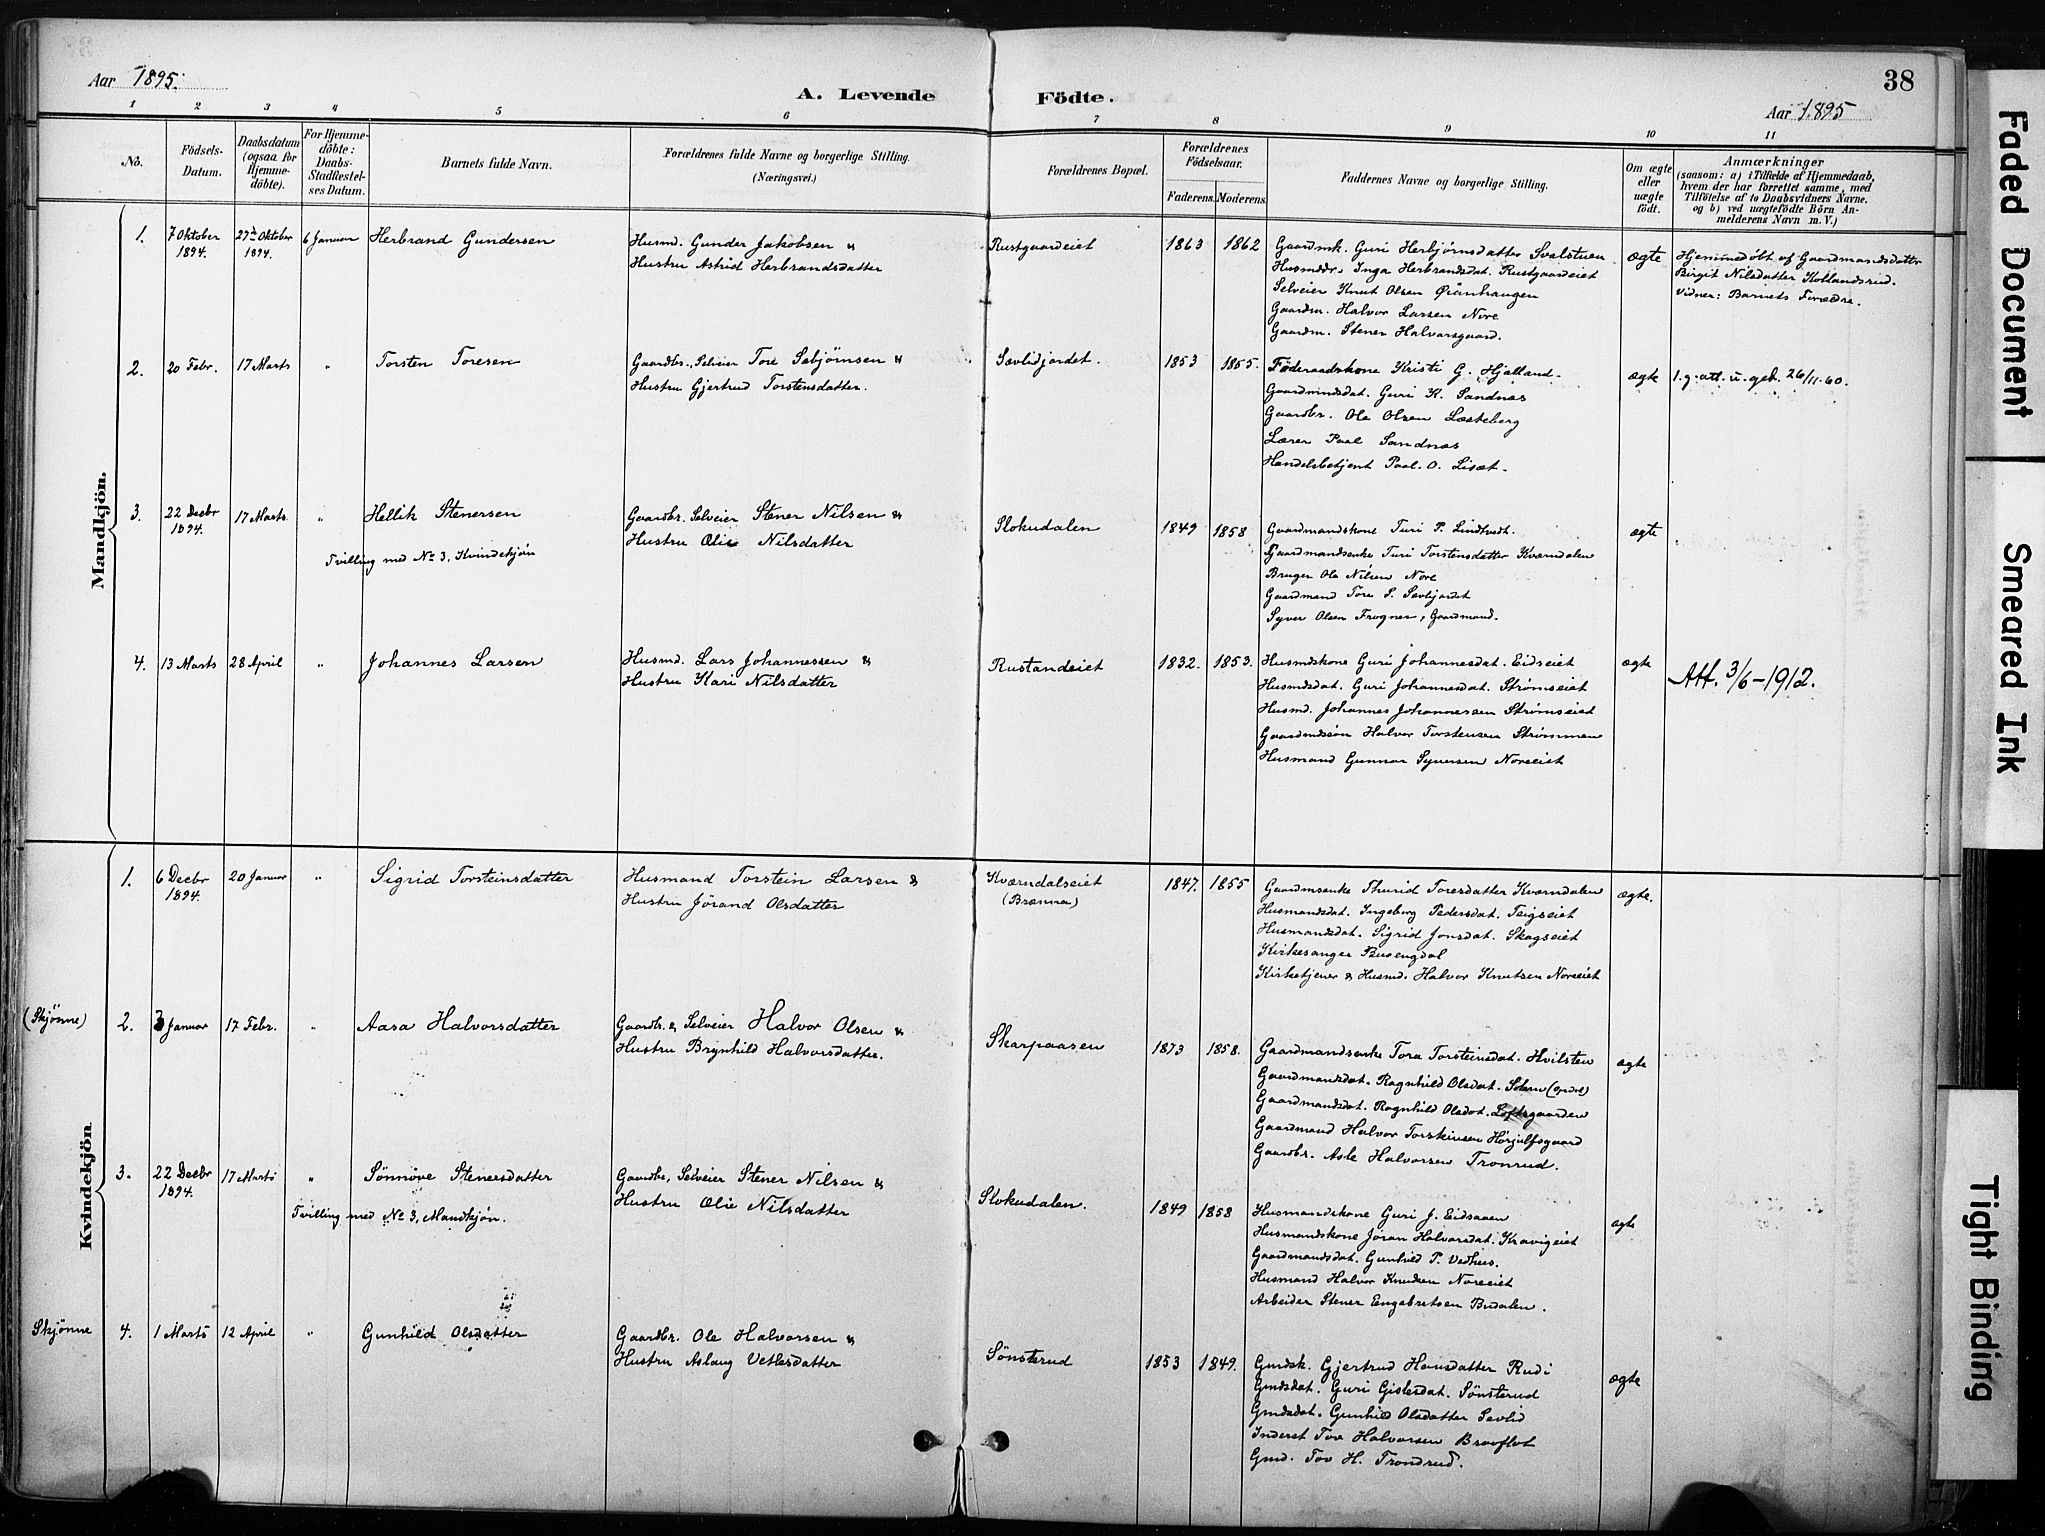 Aar 1895.
A. Levende Födte.
Aar 1895
38
1 2 3 4 5 6 7 8 9 10 11
No.
Födsels-Datum.
Daabsdatum (ogsaa for Hjemmedöbte).
For Hjemmedöbte: Daabs-Stadfæstelses Datum.
Barnets fulde Navn.
Forældrenes fulde Navne og borgerlige Stilling.
(Næringsvei.)
Forældrenes Bopæl.
Forældrenes Födselsaar.
Faderens. Moderens.
Faddernes Navne og borgerlige Stilling.
Om ægte eller uægte födt.
Anmærkninger
(saasom: a) i Tilfælde af Hjemmedaab,
hvem der har forrettet samme, med
Tilföielse af to Daabsvidners Navne.
og b) ved uægtefödte Börn An-
melderens Navn m. V.)
Mandkjön.
1. 7 Oktober 1894. 27de Oktober 1894. 6 Januar Herbrand Gundersen
Husmd. Gunder Jakobsen &
Hustru Astrid Herbrandsdatter
Rustgaardeiet 1863 1862
Gaardmk. Guri Herbjørnsdatter Svalstuen
Husmdr. Inga Herbrandsdat. Rustgaardeiet
Selveier Knut Olsen Grånhaugen
Gaardm. Halvor Larsen Nore
Gaardm. Stener Halvarsgaard.
ægte
Hjemmedøbt af Gaardmandsdatter
Birgit Nilsdatter Kollandsrud.
Vidner: Barnets Forældre.
2. 20 Febr. 17 Marts " Torsten Toresen
Gaardbr., Selveier Tore Sebjørnsen &
Hustru Gjertrud Torstensdatter.
Sevlidjordet. 1853 1855.
Föderaadskone Kristi G. Hjalland.
Gaardmandsdat. Guri K. Sandnæs
Gaardbr. Ole Olsen Læsteberg
Lærer Paal Sandnæs
Handelsbetjent Paal. O. Lisæt.
ægte
1. g. att. u. geb. 26/11-60.
3. 22 Decbr 1894. 17 Marts. " Hellik Stenersen
Tvilling med No 3, Kvindekjøn
Gaardbr. Selveier Stener Nilsen &
Hustru Olie Nilsdatter
Slokudalen 1849 1858
Gaardmandskone Turi P. Lindtvedt.
Gaardmandsenke Turi Torstensdatter Kværndalen
Bruger Ole Nilsen Nore
Gaardmand Tore S. Sevlijordet
Syver Olsen Frogner, Gaardmand.
ægte
4. 13 Marts 28 April " Johannes Larsen
Husmd. Lars Johannessen &
Hustru Kari Nilsdatter
Rustandeiet 1832. 1853.
Husmdskone Guri Johannesdat. Eidseiet
Husmdsdat. Guri Johannesdat. Strømseiet
Husmd. Johannes Johannessen Strømseiet
Gaardmdssøn Halvor Torstensen Strømmen
Husmand Gunnar Syversen Noreeiet
ægte
Att. 3/6-1912.
Kvindekjön
1. 6 Decbr 1894. 20 Januar " Sigrid Torsteinsdatter
Husmand Torstein Larsen &
Hustru Jørand Olsdatter
Kværndalseiet
(Brænna)
1847. 1855
Gaardmsenke Thurid Toresdatter Kværndalen
Husmandsdat. Ingeborg Pedersdat. Teigseiet
Husmandsdat. Sigrid Jonsdat. Skogseiet
Kirkesanger Busengdal
Kirketjener & Husmd. Halvor Knutsen Noreeiet
ægte.
(Skjønne) 2. 3 Januar 17 Febr. " Aasa Halvorsdatter
Gaardbr. & Selveier Halvor Olsen &
Hustru Brynhild Halvorsdatter.
Skarpaasen 1873 1858.
Gaardmandsenke Tora Torsteinsdat. Hvilsten
Gaardmandsdat. Ragnhild Olsdat. Solem
Gaardmandsdat. Ragnhild Olsdat. Loftsgaarden
Gaardmand Halvor Torsteinsen Hørjulfsgaard
Gaardbr. Asle Halvorsen Tronrud.
ægte
3. 22 Decbr 1894. 17 Marts " Sønnøve Stenersdatter
Tvilling med No 3, Mandkjøn.
Gaardbr, Selveier Stener Nilsen &
Hustru Olie Nilsdatter
Slokudalen. 1849 1858
Husmandskone Guri J. Eidsaaen
Husmandskone Jøran Halvorsdat. Kravigeiet
Gaardmandsdat. Gunhild T. Vedhus.
Husmand Halvor Knudsen Noreeiet
Arbeider Stener Engebretsen Budalen.
ægte
Skjønne 4. 1 Marts 12 April " Gunhild Olsdatter
Gaardbr. Ole Halvorsen &
Hustru Aslaug Vetlesdatter
Sønsterud 1853 1849.
Gmdsk. Gjertrud Hansdatter Rudi
Gmdsdat. Guri Gislesdat. Sønsterud
Gmdsdat. Gunhild Olsdatter Sevlid
Inderst Tov Halvorsen Brovflot
Gmd. Tov H. Trondrud.
ægte
Faded Document
Smeared Ink
Tight Binding